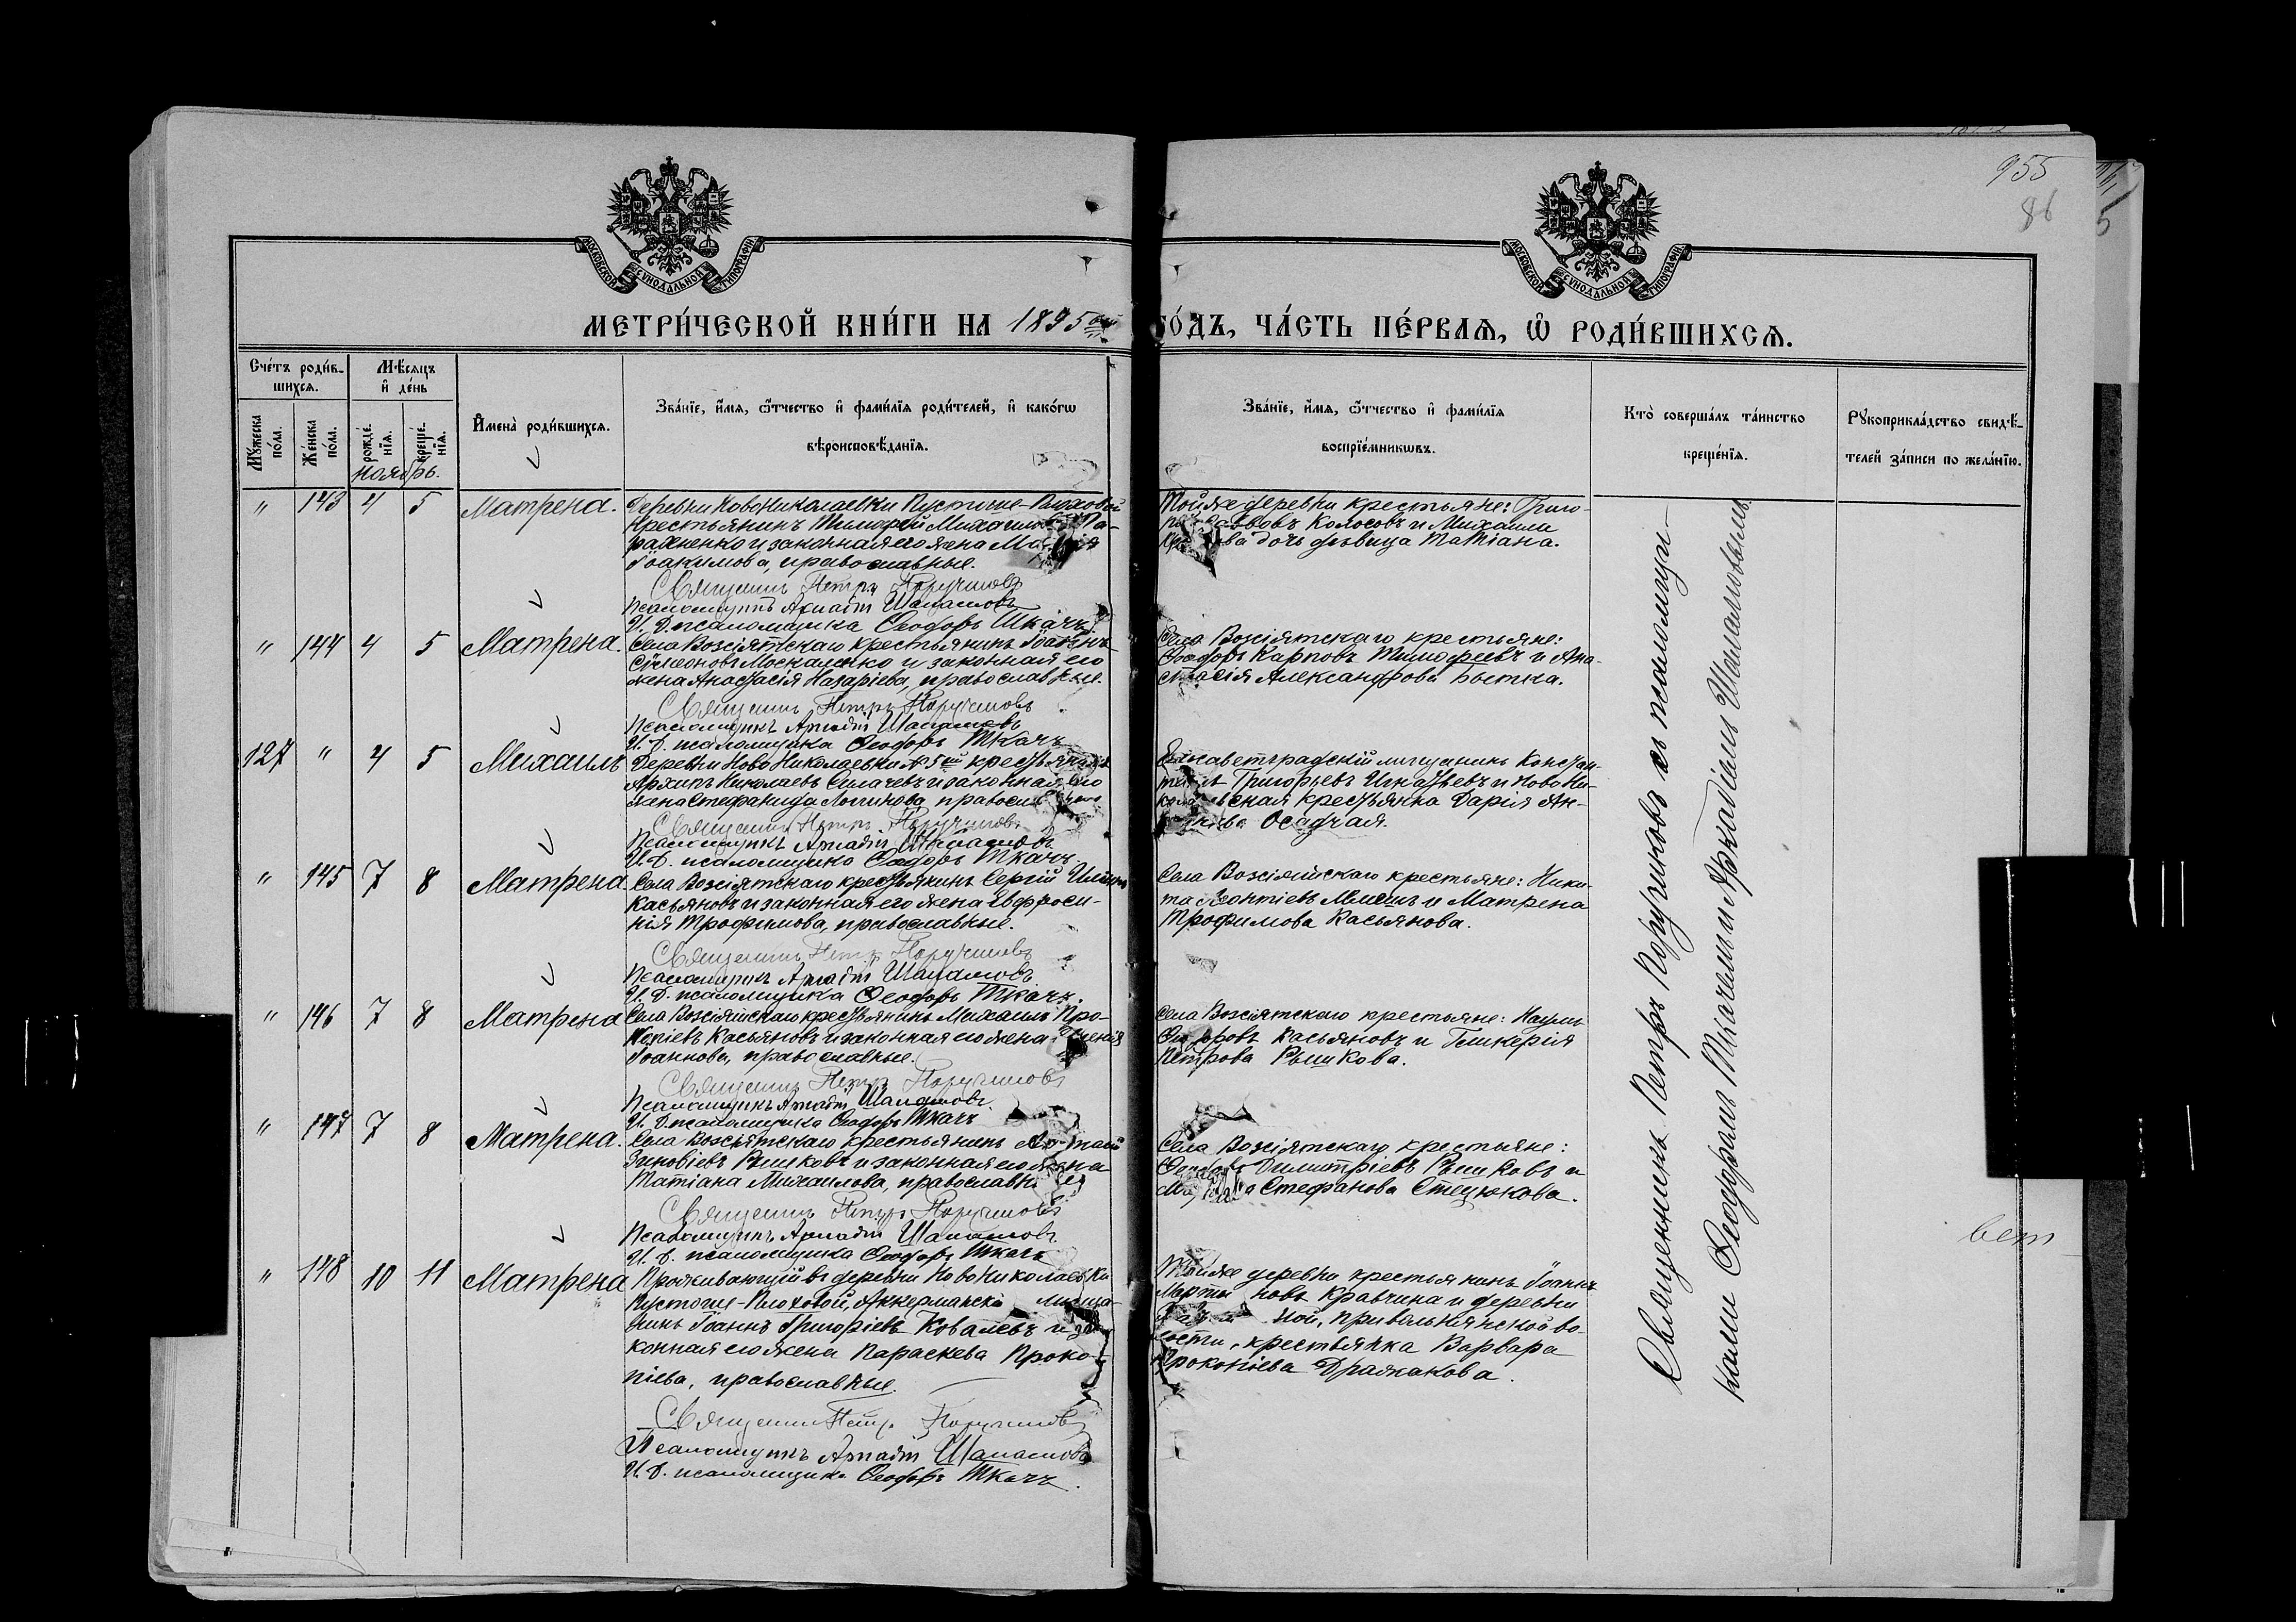 955
86
МОСКОВСКОЙ СѴНОДАЛЬНОЙ ТИПОГРАФІИ
МОСКОВСКОЙ СѴНОДАЛЬНОЙ ТИПОГРАФІИ
МЕТРИ́ЧЕСКОЙ КНИ́ГИ НА 1895 ый ГО́ДЪ, ЧА́СТЬ ПЕ́РВАѦ, Ѡ РОДИ́ВШИХСѦ.
Сче́тъ роди́в-
шихсѧ.
Мѣ́сѧцъ
и де́нь
Мꙋ́жеска по́ла.
Же́нска по́ла.
рожде́-
нїѧ.
креще́-
нїѧ.
Имена̀ роди́вшихсѧ.
Зва́нїе, и́мѧ, ѻ́тчество и фами́лїѧ роди́телей, и како́гѡ
вѣроисповѣ́данїѧ.
Зва́нїе, и́мѧ, ѻ́тчество и фами́лїѧ
воспрїе́мникѡвъ.
Кто̀ соверша́лъ та́инство
креще́нїѧ.
Рꙋкоприкла́дство свидѣ́-
телей за́писи по жела́нїю.
ноябрь.
" 143 4 5 Матрена.
Деревни Новониколаевки Пустоше-Плоховой
крестьянинъ Тимофей Михаиловъ
раженко и законная его жена
Іоакимова, православные.
Священникъ Петръ Поручиковъ
Псаломщикъ Аркадій Шапашовъ
И. Д. псаломщика Ѳеодоръ Ткачъ
Тойже деревни крестьяне: Григо-
Колосовъ и Михаила
дочь девица Татіана.
" 144 4 5 Матрена.
Села Возсіятскаго крестьянинъ Іоакимъ
Сѵмеоновъ Москаленко и законная его
жена Анастасія Назаріева, православные.
Священникъ Петръ Поручиковъ
Псаломщикъ Аркадій Шапашовъ
И. Д. псаломщика Ѳеодоръ Ткачъ
Села Возсіятскаго крестьяне:
Ѳеодоръ Карповъ Тимофеевъ и Ана-
стасія Александрова Бытка.
127 " 4 5 Михаилъ
Деревни Ново Николаевки № 5ый крестьянинъ
Архипъ Николаевъ Силачевъ и законная его
жена Стефанида Логинова, православные
Священникъ Петръ Поручиковъ
Псаломщикъ Аркадій Шапашовъ
И. Д. псаломщика Ѳеодоръ Ткачъ
Елисаветградскій мещанинъ Констан-
тинъ Григорьевъ Игнатьевъ и Ново Ни-
колаевская крестьянка Дарія Ан-
Осадчая.
" 145 7 8 Матрена
Села Возсіятскаго крестьянинъ Сергій
Касьяновъ и законная его жена Евфроси-
нія Трофимова, православные.
Священникъ Петръ Поручиковъ
Псаломщикъ Аркадій Шапашовъ
И. Д. псаломщика Ѳеодоръ Ткачъ.
Села Возсіятскаго крестьяне: Ники-
та Леонтіевъ и Матрена
Трофимова Касьянова.
" 146 7 8 Матрена
Села Возсіятскаго крестьянинъ Михаилъ Про-
копіевъ Касьяновъ и законная его жена
Іоаннова, православные.
Священникъ Петръ Поручиковъ
Псаломщикъ Аркадій Шапашовъ
И. Д. псаломщика Ѳеодоръ Ткачъ
Села Возсіятскаго крестьяне: Наумъ
Касьяновъ и Гликерія
Петрова Рышкова.
" 147 7 8 Матрена.
Села Возсіятскаго крестьянинъ
Зиновіевъ Рышковъ и законная его жена
Татіана Михаилова, православные
Священникъ Петръ Поручиковъ
Псаломщикъ Аркадій Шапашовъ
И. Д. псаломщика Ѳеодоръ Ткачъ
Села Возсіятскаго крестьяне:
Димитріевъ Рышковъ и
Стефанова Стецюкова.
" 148 10 11 Матрена
Проживающій въ деревни Ново Николаевки
Пустоше-Плоховой, Аккерманскій меща-
нинъ Іоаннъ Григоріевъ Ковалевъ и за-
конная его жена Параскева Проко-
піева, православные.
Священникъ Петръ Поручиковъ
Псаломщикъ Аркадій Шапашовъ
И. Д. псаломщика Ѳеодоръ Ткачъ.
Тойже деревни крестьянинъ Іоаннъ
Мартыновъ Кравчина и деревни
во-
лости, крестьянка Варвара
Прокопіева Дражакова.
Священникъ Петръ Поручиковъ съ псаломщи-
ками Ѳеодоромъ Ткачемъ и Аркадіемъ Шапашовымъ.